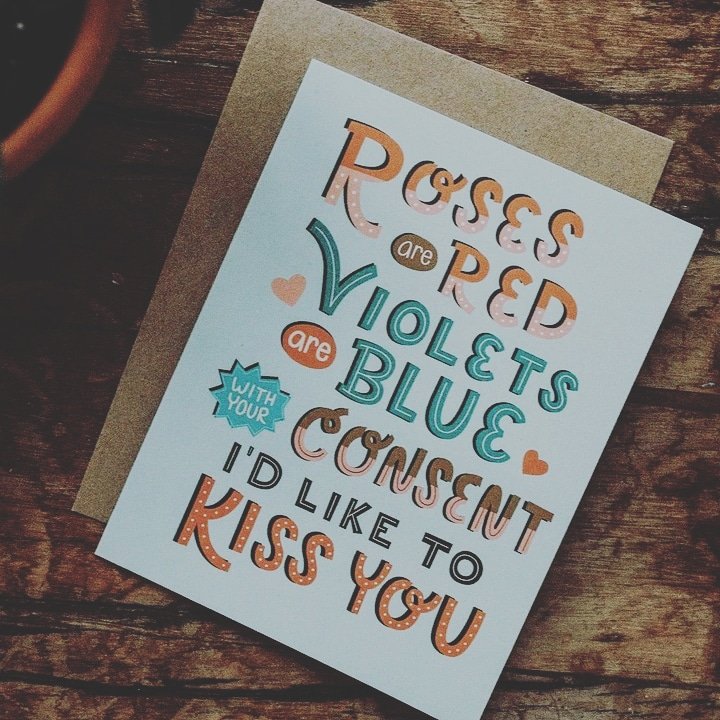 ROSES
are RED
VIOLETS
are BLUE
WITH YOUR CONSENT
I'D LIKE TO
KISS YOU